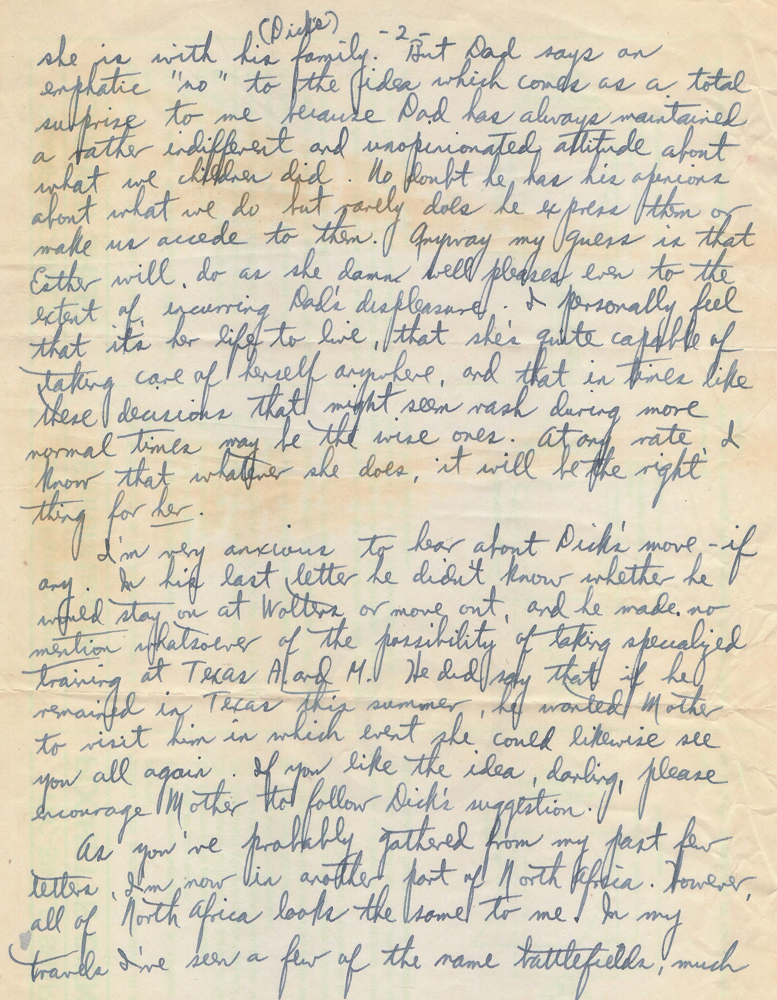 (Dick's) -2-
she is with his family. But Dad says an
emphatic "no" to the idea which comes as a total
surprise to me because Dad has always maintained
a rather indifferent and unopinionated attitude about
what we children did. No doubt he has his opinions
about what we do but rarely does he express them or
make us accede to them. Anyway my guess is that
Esther will do as she damn well pleases even to the
extent of incurring Dad's displeasure. I personally feel
that it's her life to live, that she's quite capable of
taking care of herself anywhere, and that in times like
these decisions that might seem rash during more
normal times may be the wise ones. At any rate, I
know that whatever she does, it will be the right
thing for her.
I'm very anxious to hear about Dick's move - if
any. In his last letter he didn't know whether he
would stay on at Wolters or move out, and he made no
mention whatsoever of the possibility of taking specialized
training at Texas A. and M. He did say that if he
remained in Texas this summer, he wanted Mother
to visit him in which event she could likewise see
you all again. If you like the idea, darling, please
encourage Mother to follow Dick's suggestion.
As you've probably gathered from my past few
letters, I'm now in another part of North Africa. However,
all of North Africa looks the same to me. In my
travels I've seen a few of the name battlefields, much